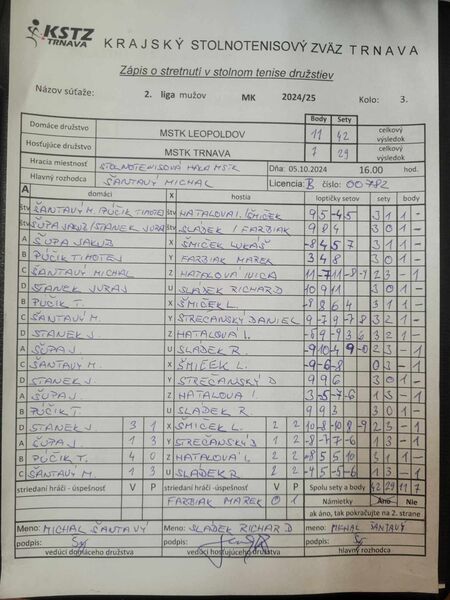 KSTZ
TRNAVA
KRAJSKÝ STOLNOTENISOVÝ ZVÄZ TRNAVA
Zápis o stretnutí v stolnom tenise družstiev
Názov súťaže: 2. liga mužov MK 2024/25 Kolo: 3.
Body Sety
Domáce družstvo MSTK LEOPOLDOV 11 42 celkový výsledok
Hosťujúce družstvo MSTK TRNAVA 7 29 celkový výsledok
Hracia miestnosť STOLNOTENISOVÁ HALA MSTK Dňa: 05.10.2024 16.00 hod.
Hlavný rozhodca ŠANTAVÝ MICHAL Licencia: B číslo: 00782
A domáci X hostia loptičky setov sety body
štv ŠANTAVÝ M. /PÚČIK TIMOTEJ štv HATALOVÁ I. /ŠMIČEK 9 5 -4 5 3 1 1 -
štv ŠUPA JAKUB/STANEK JURAJ štv SLÁDEK / FARBIAK 9 8 4 3 0 1 -
A ŠUPA JAKUB X ŠMIČEK LUKÁŠ -8 4 5 7 3 1 1 -
B PÚČIK TIMOTEJ Y FARBIAK MAREK 3 4 8 3 0 1 -
C ŠANTAVÝ MICHAL Z HATALOVÁ IVICA 11 -7 11 -8 -9 2 3 - 1
D STANEK JURAJ U SLÁDEK RICHARD 10 9 11 3 0 1 -
B PÚČIK T. X ŠMIČEK L. -8 8 6 4 3 1 1 -
C ŠANTAVÝ M. Y STREČANSKÝ DANIEL 9 -7 9 -7 8 3 2 1 -
D STANEK J. Z HATALOVÁ I. -6 9 -9 3 6 3 2 1 -
A ŠUPA J. U SLÁDEK R. -9 10 4 -9 -0 2 3 - 1
C ŠANTAVÝ M. X ŠMIČEK L. -9 -6 -8 0 3 - 1
D STANEK J. Y STREČANSKÝ D 9 9 6 3 0 1 -
A ŠUPA J. Z HATALOVÁ I 3 -5 -7 -6 1 3 - 1
B PÚČIK T. U SLÁDEK R. 9 9 3 3 0 1 -
D STANEK J. 3 1 X ŠMIČEK L. 2 2
A ŠUPA J. 1 3 Y STREČANSKÝ D 1 2 -8 -7 7 -6 1 3 - 1
B PÚČIK T. 4 0 Z HATALOVÁ I. 2 2 -8 5 5 10 3 1 1 -
C ŠANTAVÝ M. 1 3 U SLÁDEK R 2 2 -4 5 -5 -6 1 3 - 1
striedaní hráči - úspešnosť V P striedaní hráči - úspešnosť V P Spolu sety a body 42 29 11 7
FARBIAK MAREK 0 1 Námietky Áno Nie
ak áno, tak pokračujte na 2. strane
Meno: MICHAL ŠANTAVÝ Meno: SLÁDEK RICHARD Meno: MICHAL ŠANTAVÝ
podpis: podpis: podpis:
vedúci domáceho družstva vedúci hosťujúceho družstva hlavný rozhodca